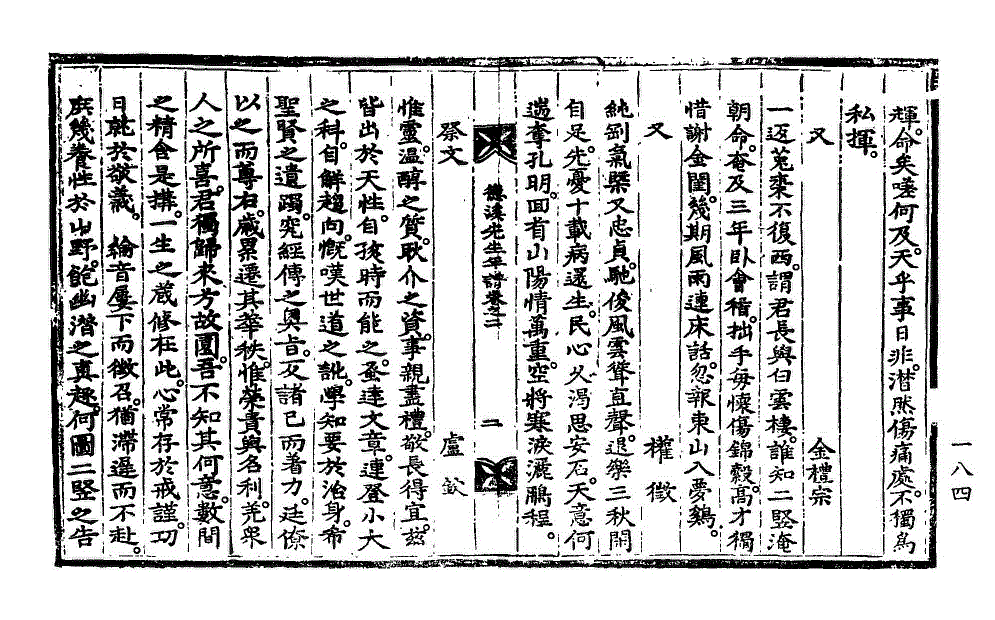 輝。命矣嗟何及。天乎事日非。潜然傷痛處。不獨爲
私揮。
又 金禮宗
一返菟裘不復西。謂君長與白雲棲。誰知二竪淹
朝命。奄及三年臥會稽。拙手每懷傷錦縠。高才獨
惜謝金閨。幾期風雨連床話。忽報東山入夢鷄。
又 權徵
純剛氣槩又忠貞。馳俊風雲聳直聲。退樂三秋閑
自足。先憂十載病還生。民心久渴思安石。天意何
遄奪孔明。回首山陽情萬重。空將寒淚灑鵬程。
德溪先生年譜卷之二 二
祭文 盧欽
惟靈。溫醇之質。耿介之資。事親盡禮。敬長得宜。玆
皆出於天性。自孩時而能之。蚤達文章。連登小大
之科。自解趨向。慨嘆世道之訛。學知要於治身。希
聖賢之遺躅。究經傳之奧旨。反諸己而着力。廷僚
以之而尊右。歲累遷其華秩。惟榮貴與名利。羌衆
人之所喜。君獨歸來方故園。吾不知其何意。數間
之精舍是搆。一生之藏修在此。心常存於戒謹。功
日就於敬義。 綸音屢下而徵召。猶滯遲而不赴。
庶幾養性於山野。飽幽潛之眞趣。何圖二竪之告
一八四